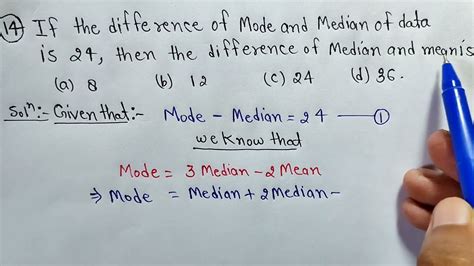 14 If the difference of Mode and Median of data
is 24, then the difference of Median and mean is
(a) 8 (b) 12 (c) 24 (d) 36.
Solⁿ:- Given that:- Mode - Median = 24 — 1
we know that
Mode = 3 Median - 2 Mean
⇒ Mode = Median + 2 Median -